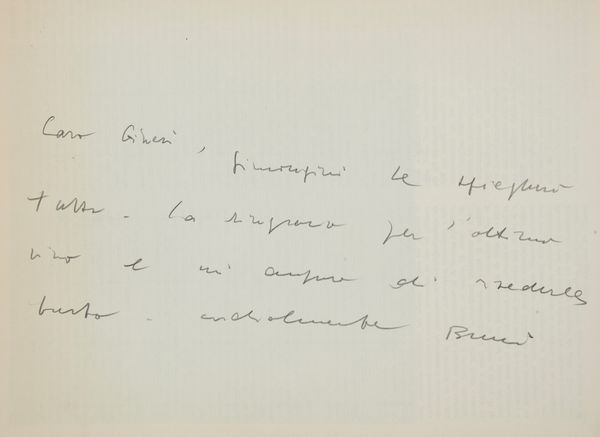 Caro Gineri, Simongini le spiegherà
tutto. La ringrazio per l'ottimo
vino e mi auguro di rivederla
presto. cordialmente Burri